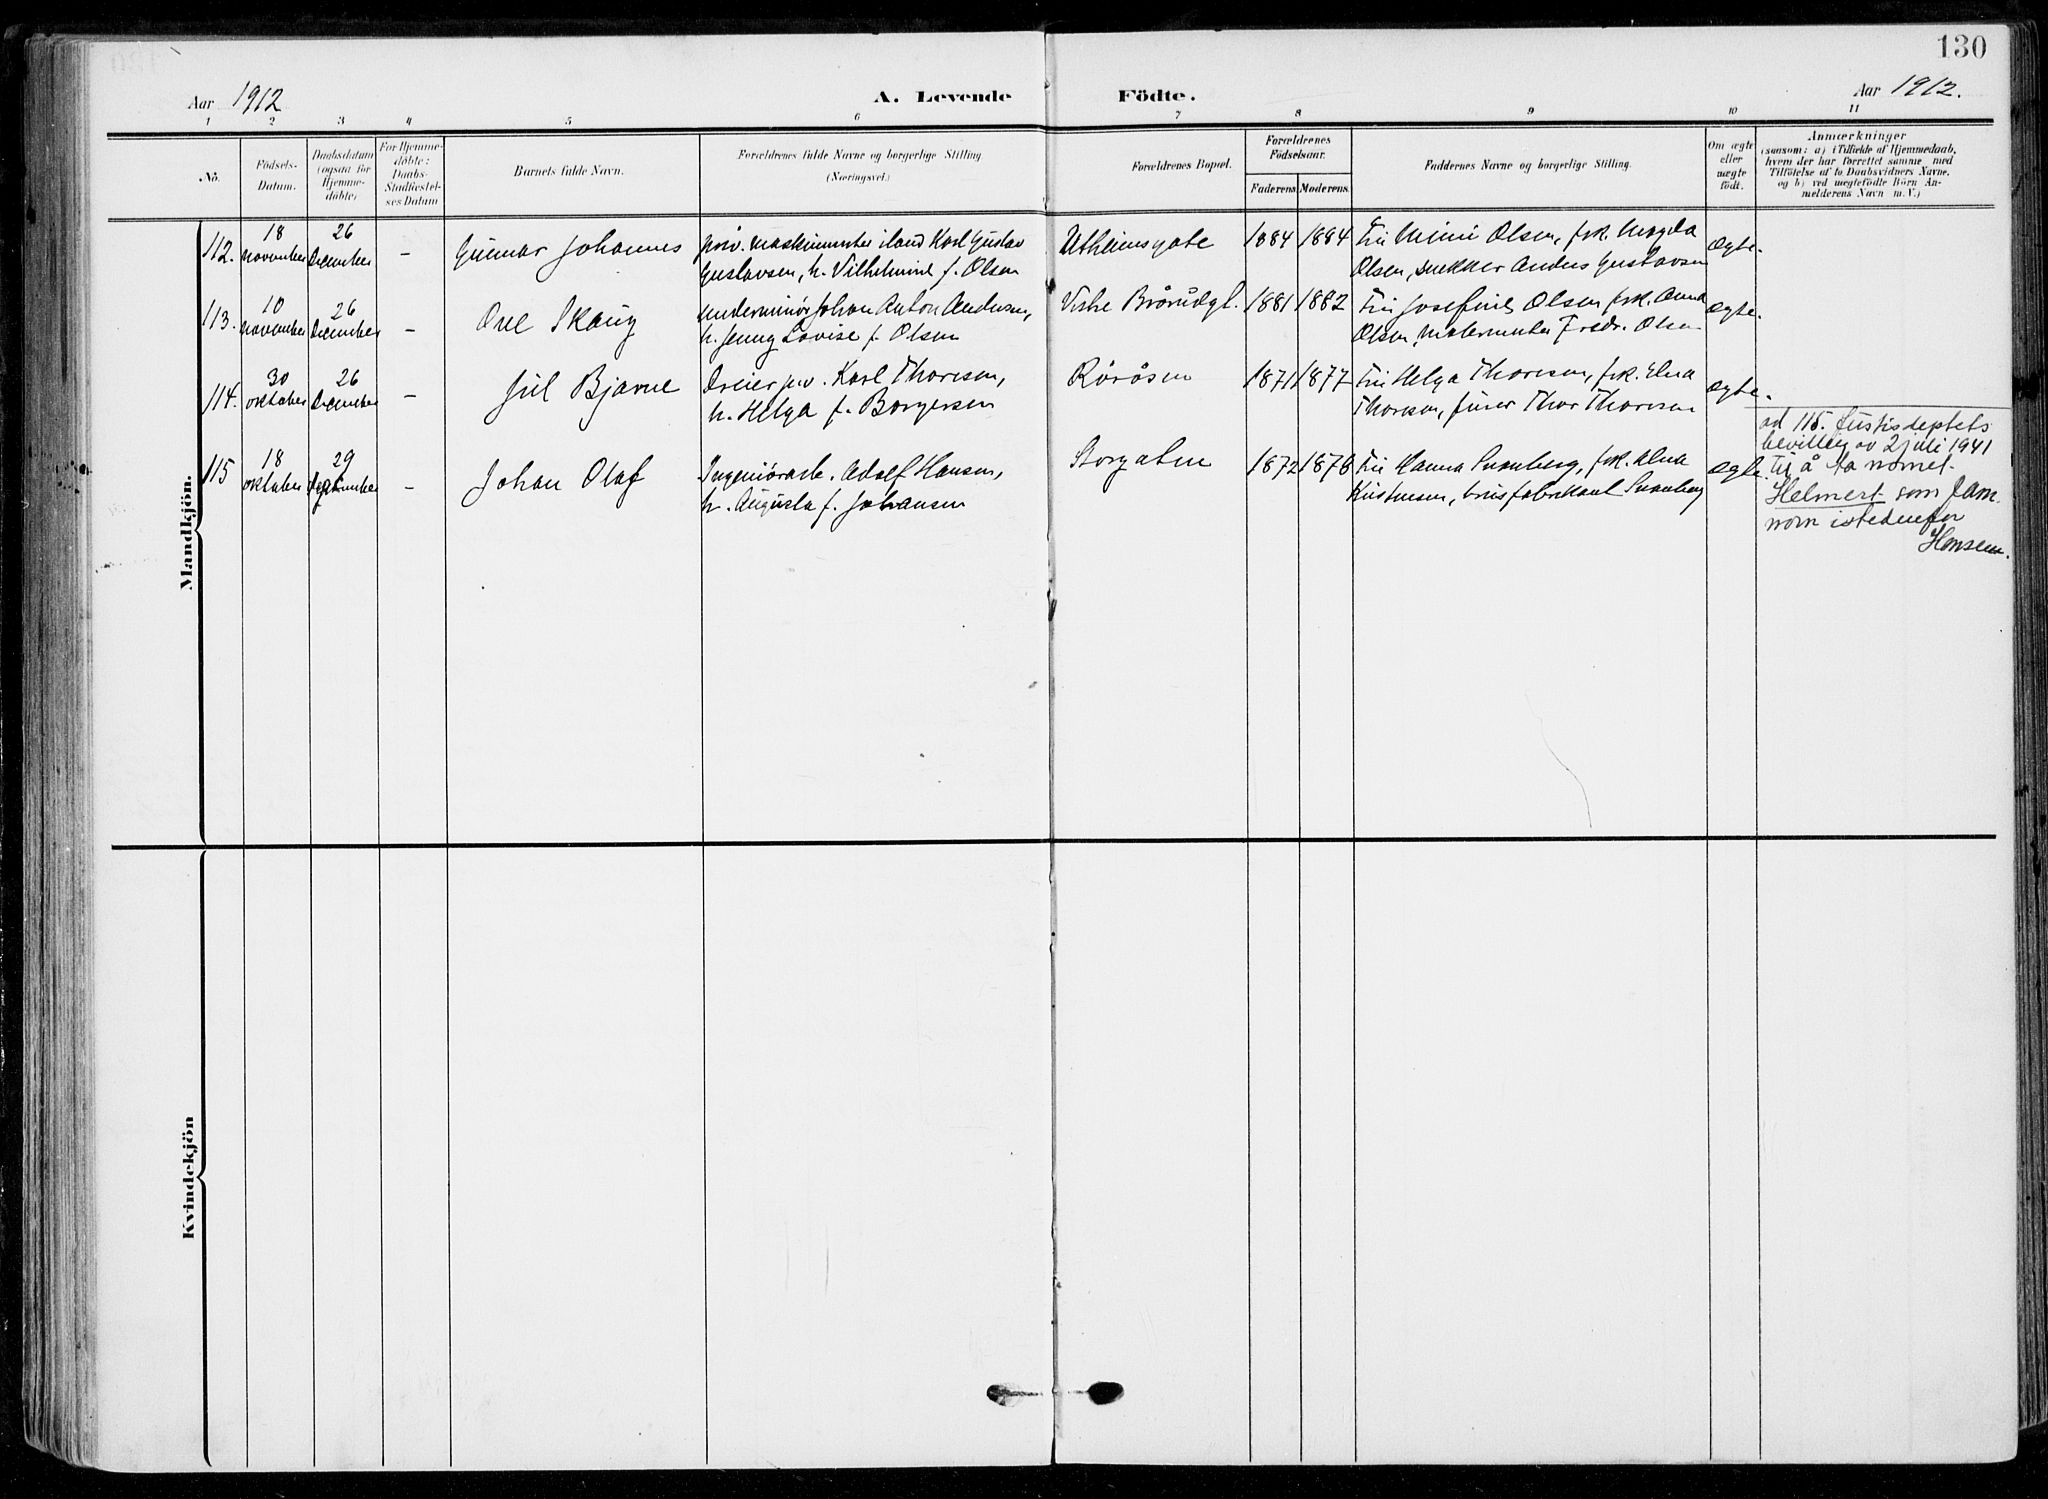 130
Aar 1912
A. Levende Födte.
Aar 1912.
1 2 3 4 5 6 7 8 9 10 11
No.
Födsels-Datum.
Daabsdatum (ogsaa for Hjemme-döbte)
For Hjemme-döbte: Daabs-Stadfæstel-ses Datum
Barnets fulde Navn.
Forældrenes fulde Navne og borgerlige Stilling
(Næringsvei.)
Forældrenes Bopæl.
Forældrenes Födselsaar.
Faderens Moderens.
Faddernes Navne og borgerlige Stilling.
Om ægte eller uægte født.
Anmærkninger
(saasom: a) i Tilfælde af Hjemmedaab,
hvem der har forrettet samme med
Tilföielse af to Daabsvidners Navne,
og b) ved uægtefödte Börn An-
melderens Navn m. V.)
Mandkjön.
112. 18 november 26 December – Gunnar Johannes
priv. maskinmester iland Karl Gustav
Gustavsen, h. Vilhelmine f. Olsen
Utheimsgate 1884 1884
Fru Minni Olsen, frk. Magda
Olsen, snekker Anders Gustavsen
ægte.
113. 10 november 26 December – Ove Skaug
underminör Johan Anton Andersen,
h. Jenny Lovise f. Olsen
Vestre Brårudgt. 1881 1882
Fru Josefine Olsen, frk. Anna
Olsen, malermester Fredr. Olsen
ægte.
114. 30 oktober 26 December – Juel Bjarne
Dreier p.v. Karl Thoresen,
h. Helga f. Borgersen
Röråsen 1871 1877
Fru Helga Thoresen, frk. Elna
Thoresen, furer Thor Thoresen
ægte.
115 18 oktober 29 December – Johan Olaf
Ingeniörarb. Adolf Hansen,
h. Augusta f. Johansen
Storgaten 1872 1876
Fru Hanna Svanberg, frk. Alna
Kristensen, brusfabrikant Svanberg
ægte
ad 115. Justisdeptets
bevilling av 2 juli 1941
til å ta navnet
Helmert som fam.
navn istedenfor
Hansen.
Kvindekjön